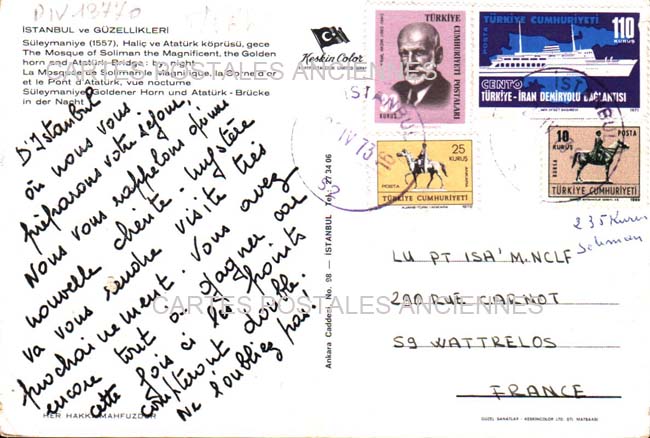 DIV 13770
İSTANBUL ve GÜZELLİKLERİ
Süleymaniye (1557), Haliç ve Atatürk köprüsü, gece
The Mosque of Soliman the Magnificent, the Golden
horn and Atatürk Bridge: by night
La Mosquée de Soliman le Magnifique, la Corne d'or
et le Pont d'Atatürk, vue nocturne
Süleymaniye, Goldener Horn und Atatürk - Brücke
in der Nacht
Keskin Color
CARTES POSTALES ANCIENNES
D'Istanbul
où nous vous
préparons votre séjour,
Nous vous rappelons qu'une
nouvelle cliente mystère
va vous rendre visite très
prochainement. Vous avez
encore tout à gagner car
cette fois ci les points
compteront double.
Ne l'oubliez pas!
HER HAKKI MAHFUZDUR
Ankara Caddesi No. 98 — İSTANBUL Tel: 27 34 06
TÜRKİYE
CUMHURİYETİ
POSTALARI
KURUŞ
TÜRKİYE CUMHURİYETİ
110
KURUŞ
POSTA
CENTO
TÜRKİYE-İRAN DEMİRYOLU BAĞLANTISI
1971
25
KURUŞ
POSTA
ANKARA
TÜRKİYE CUMHURİYETİ
10
KURUŞ
POSTA
BURSA
TÜRKİYE CUMHURİYETİ
1969
İSTANBUL
IV 73 16
235 Kuruş
LU PT ISA' M.NCLF
290 RUE CARNOT
59 WATTRELOS
FRANCE
CARTES POSTALES ANCIENNES
GÜZEL SANATLAR - KESKINCOLOR LTD. ŞTİ MATBAASI